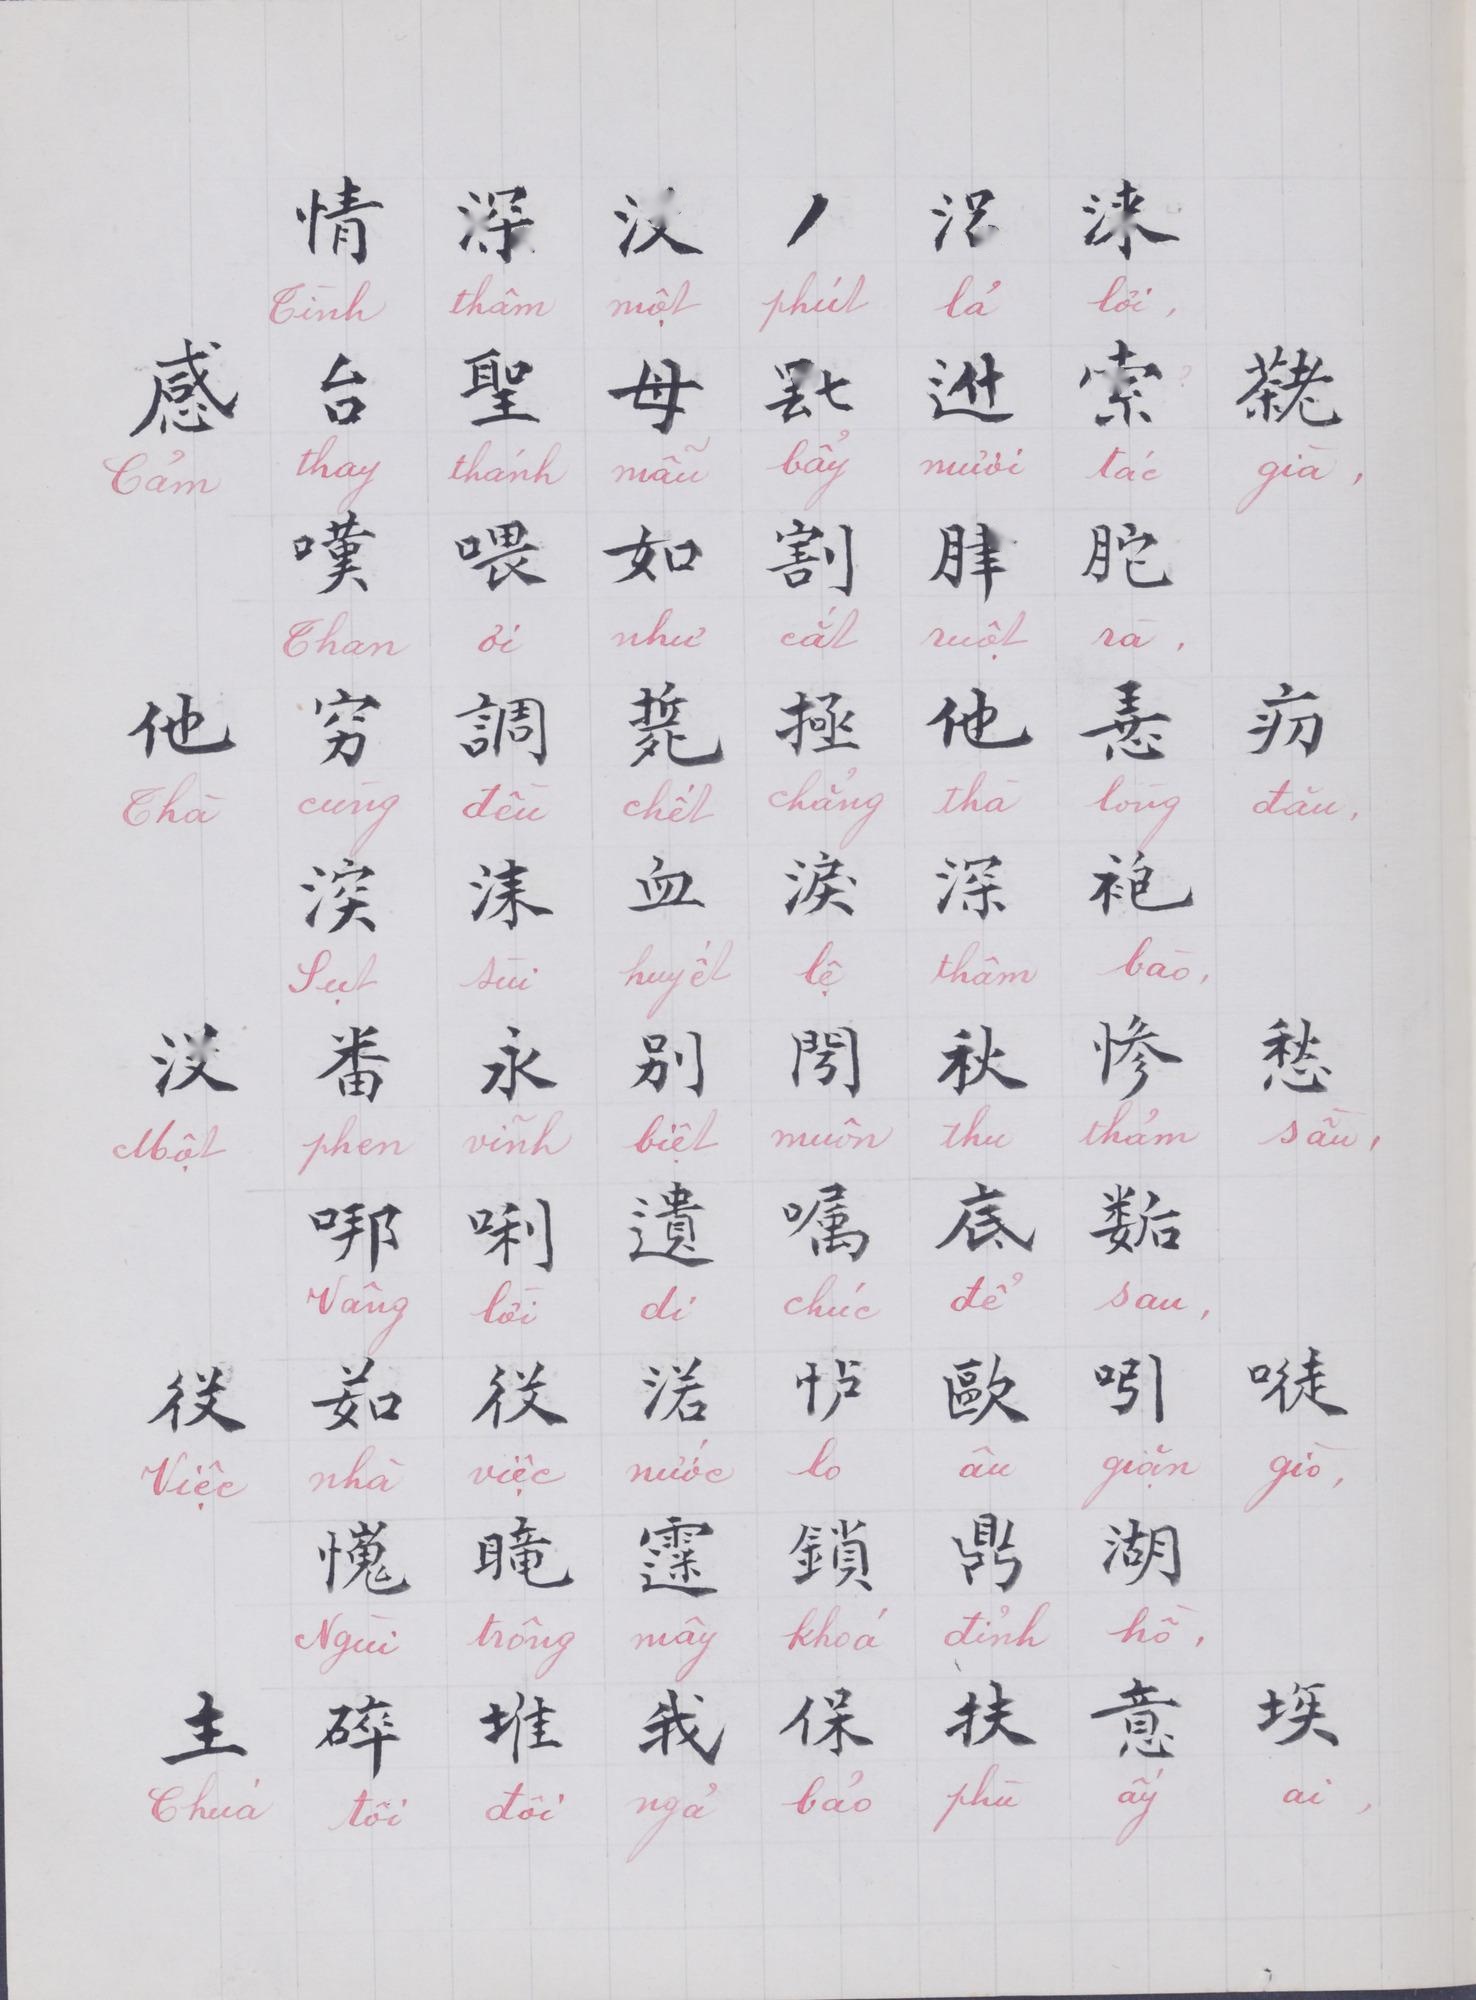 情 深 沒 丿 𣳮 淶
Tình thâm một phút lả lơi,
感 台 聖 母 𦉱 𨑮 索 𦓅
Cảm thay thánh mẫu bẩy mươi tác già,
嘆 喂 如 割 胩 胣
Than ơi như cắt ruột ra,
他 穷 調 𣩂 極 他 𢚸 疠
Thà cùng đều chết chẳng thà lòng đău,
湥 洡 血 淚 深 袍
Sụt sùi huyết lệ thâm bào,
沒 番 永 别 閍 秋 惨 愁
Một phen vĩnh biệt muôn thu thảm sầu,
哪 唎 遺 嘱 底 𡢐
Vâng lời di chúc để sau,
役 茹 役 渃 𢗼 歐 吲 𠾼
Việc nhà việc nước lo âu giặn giò,
愧 𥊣 𩄲 鎖 鼎 湖
Ngùi trông mây khoá đỉnh hồ,
主 碎 堆 我 保 扶 意 埃
Chuá tôi đôi ngả bảo phù ấy ai,